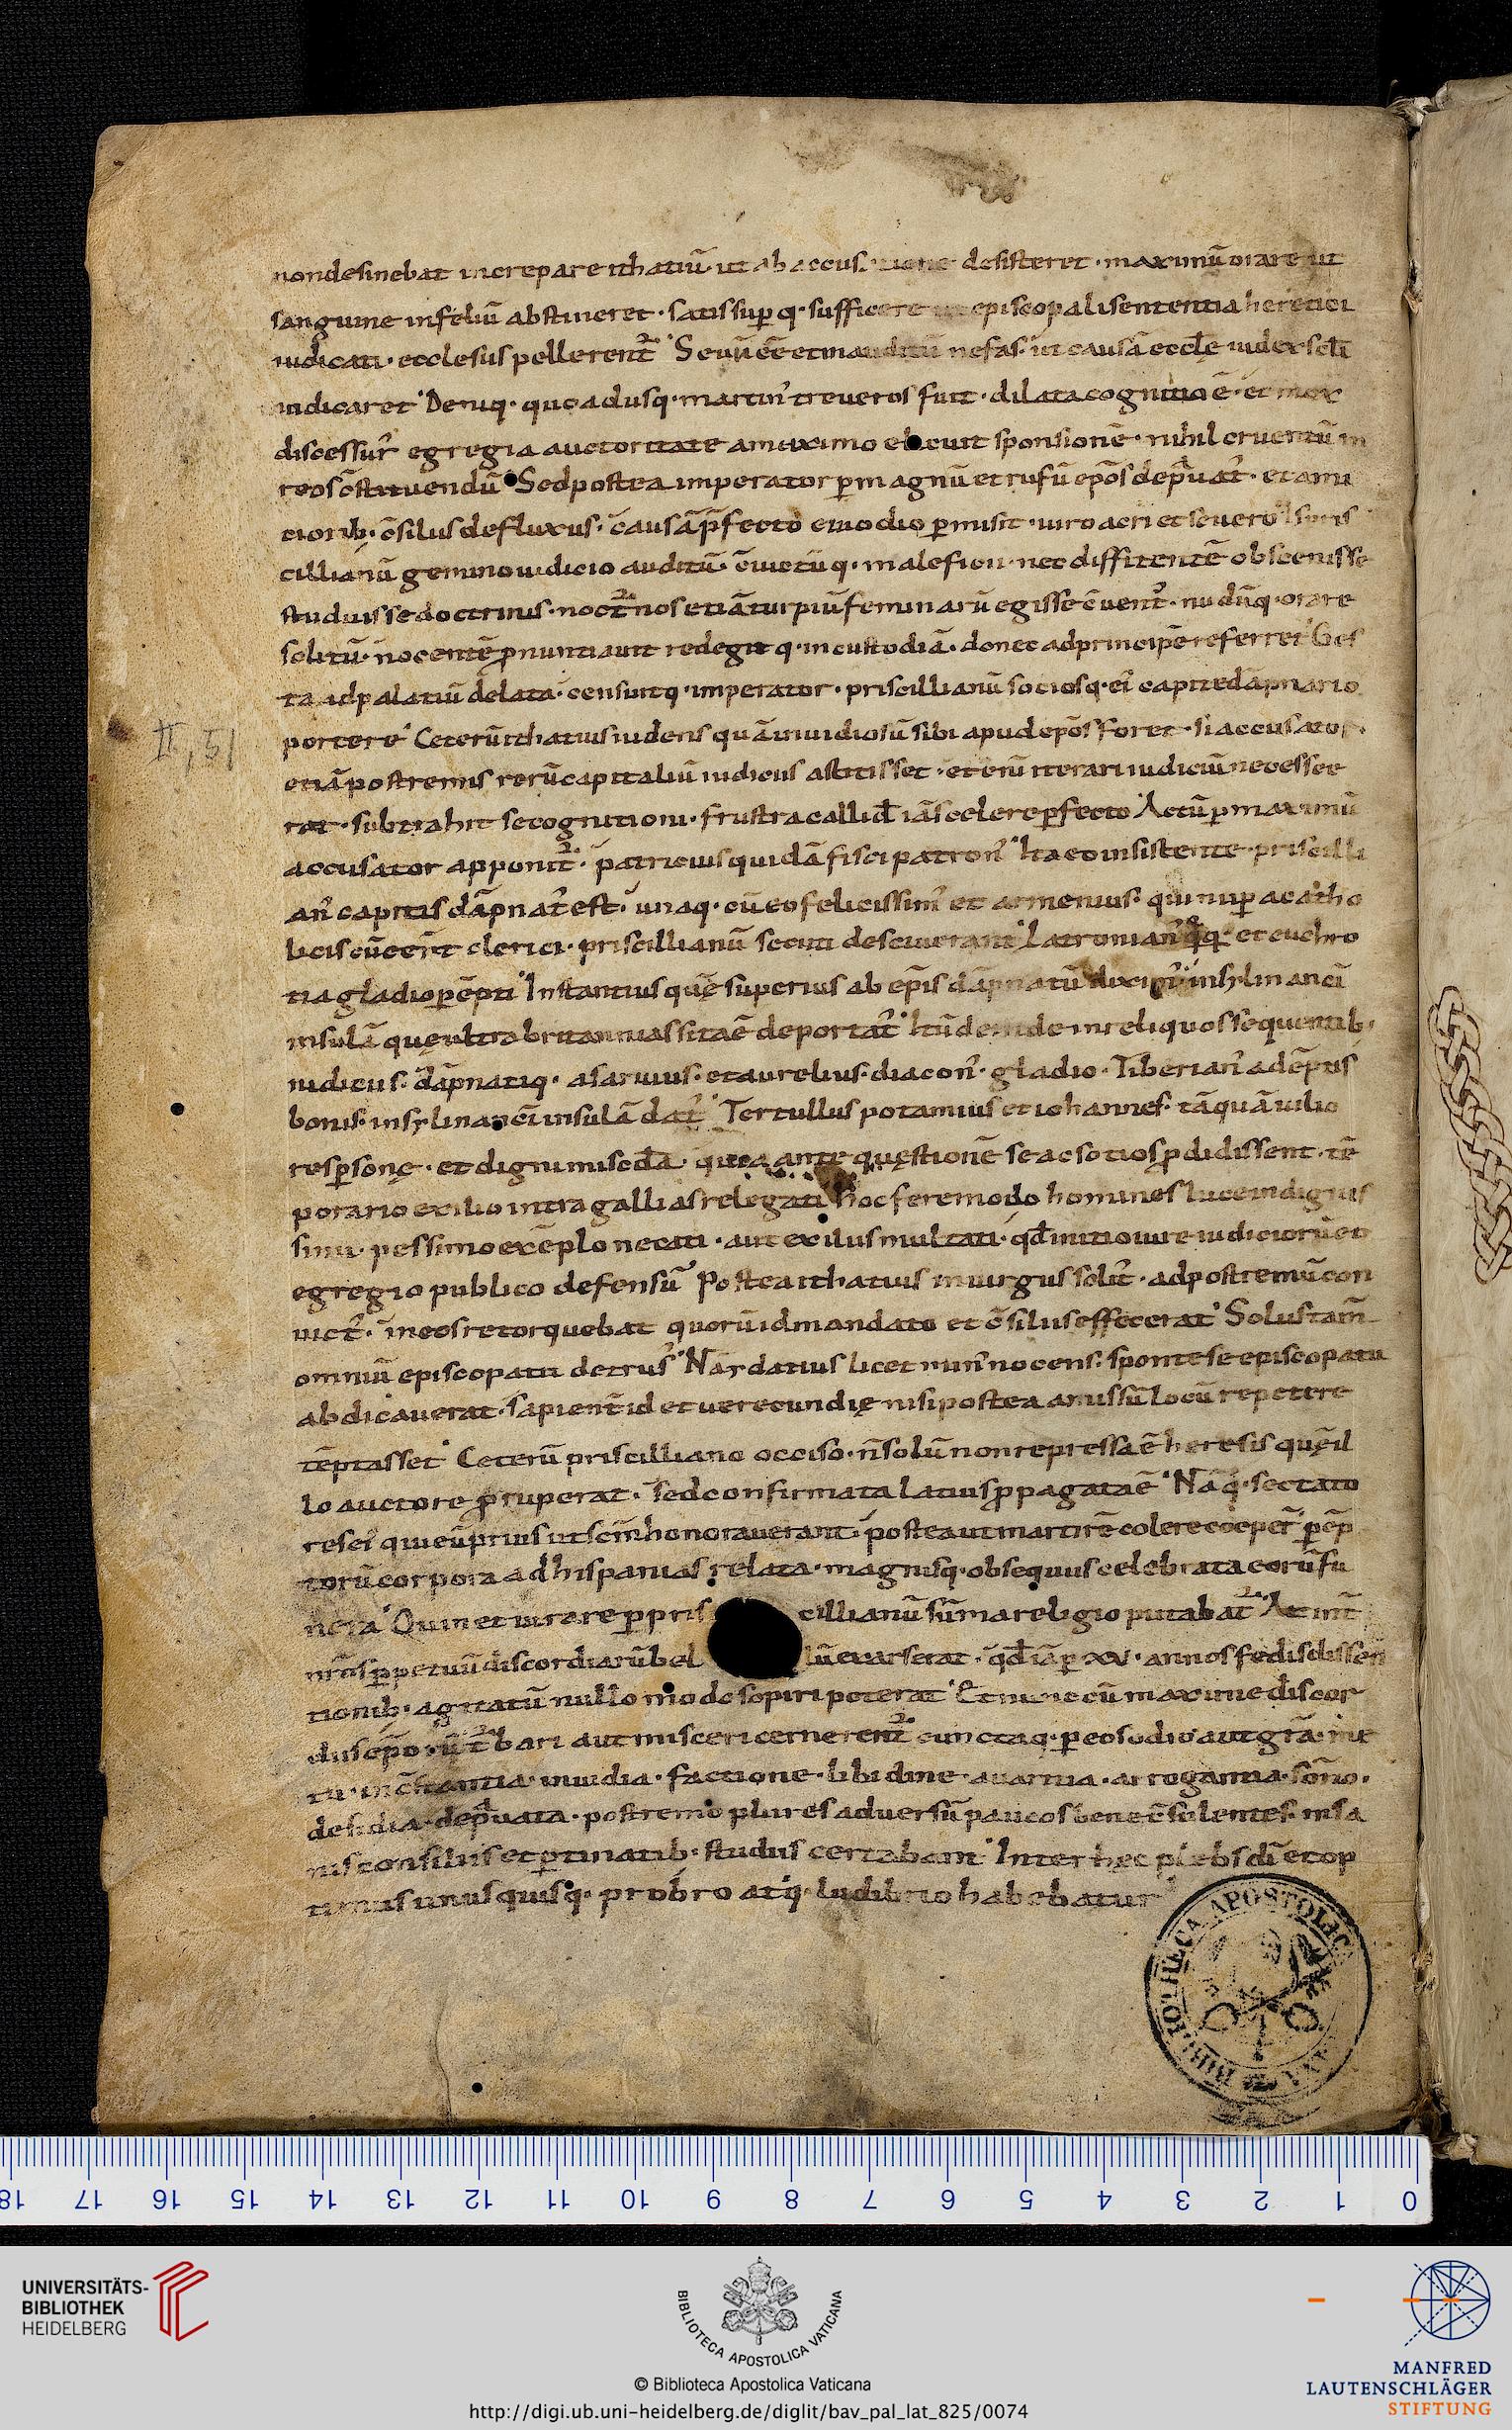 nondesinebat increpare ithatiū. ut ab accusatione desisteret. maximū orare ut
sanguine infeliū abstineret. satis supq. sufficere ut episcopali sententia heretici
iudicati. ecclesiis pellerent᷑. Seuū eē et inauditū nefas. ut causā ecclę iudex scłi
iudicaret. Deniq. quo adusq. martin᷒ treueros fuit. dilata cognitio ē. et mox
discessur᷒ egregia auctoritate amaximo elicuit sponsionē. nihil cruentū in
reos c̄stituendū. Sed postea imperator p magnū et rufū ep̄os depͣuat᷒. et a mi
tiorib. c̄siliis defluxus. causā p̄fecto euuodio pmisit. uiro acri et seuero. Is pris
cillianū gemino iudicio auditū. c̄uictūq. maleficii. nec diffitentē obscenis se
studuisse doctrinis. noct᷑nos etiā turpiū feminarū egisse c̄uent᷒. nudūq. orare
solitū. nocentē pronuntiauit redegitq. in custodiā. donec ad principē referret. Ges
ta ad palatiū delata. censuitq. imperator. priscillianū sociosq. ei᷒ capite dāpnari o
portere. Ceterū ithatius uidens quā inuidiosū sibi apud ep̄os foret. si accusator
etiā postremis rerū capitaliū iudiciis astitisset. etenī iterari iudiciū necesse e
rat. subtrahit se cognitioni. frustra callid᷒ iā scelere pfecto. Actū p maximū
accusator apponit᷑. patricius quidā fisci patron᷒. Ita eo insistente. priscilli
an᷒ capitis dāpnat᷒ est. unaq. cū eo felicissim᷒ et armenius. qui nup a catho
licis cū eēnt clerici. priscillianū secuti desciuerant. Latronian᷒ qͦq. et euchro
tia gladio pēpti. Instantius quē superius ab ep̄is dāpnatū dixim᷒. in sylinancī
insulā quę ultra britannias sita ē deportat᷒. Itū deinde in reliquos sequentib.
iudiciis. dāpnatiq. asariuus. et aurelius. diacon᷒. gladio. Tiberian᷒ adēptis
bonis. in sylinancī insulā dat᷒. Tertullus potamius et iohannes. tāquā uilio
res psonę. et digni mis̄cdīa. quia ante quęstionē se ac sotios prodidissent. tē
porario exilio intra gallias relegati. Hoc fere modo homines luce indignis
simi. pessimo exēplo necati. aut exiliis multati. qđ initio iure iudiciorū et
egregio publico defensū. Postea ithatius in iurgiis solit᷒. ad postremū con
uict᷒. in eos retorquebat quorū id mandato et c̄siliis effecerat. Solus tam̄
omniū episcopatu detrus᷒. Nā ydatius licet min᷒ nocens. sponte se episcopatu
abdicauerat. sapient᷑ id et uerecundię nisi postea amissū locū repetere
tēptasset. Ceterū priscilliano occiso. n̄ solū non repressa ē heresis quę il
lo auctore proruperat. sed confirmata latius propagata ē. Nāq. sectato
res ei᷒ qui eū prius ut scm̄ honorauerant. postea ut martirē colere coeper̄. pēp
torū corpora ad hispanias relata. magnisq. obsequiis celebrata eorū fu
nera. Quin et iurare p pris cillianū sūma religio putabat᷑. At int᷑
nr̄os ppetuū discordiarū bel lū exarserat. qđ iā p xv. annos fedis dissen
tionib. agitatū nullo modo sopiri poterat. Et nunc cū maxime discor
diis ep̄orū t᷑bari aut misceri cernerent᷑. cunctaq. p eos odio aut grā. me
tu. incstantia. inuidia. factione. libidine. auaritia. arrogantia. sōno.
desidia. depͣuata. postremo plures aduersū paucos bene c̄sulentes. insa
nis consiliis et ptinatib. studiis certabant. Inter hęc plebs dī et op
timus unusquisq. probro atq. ludibrio habebatur.
II, 51
BIBLIOTHECA APOSTOLICA VATICANA
0 1 2 3 4 5 6 7 8 9 10 11 12 13 14 15 16 17 18
UNIVERSITÄTS-
BIBLIOTHEK
HEIDELBERG
BIBLIOTECA APOSTOLICA VATICANA
© Biblioteca Apostolica Vaticana
http://digi.ub.uni-heidelberg.de/diglit/bav_pal_lat_825/0074
MANFRED
LAUTENSCHLÄGER
STIFTUNG